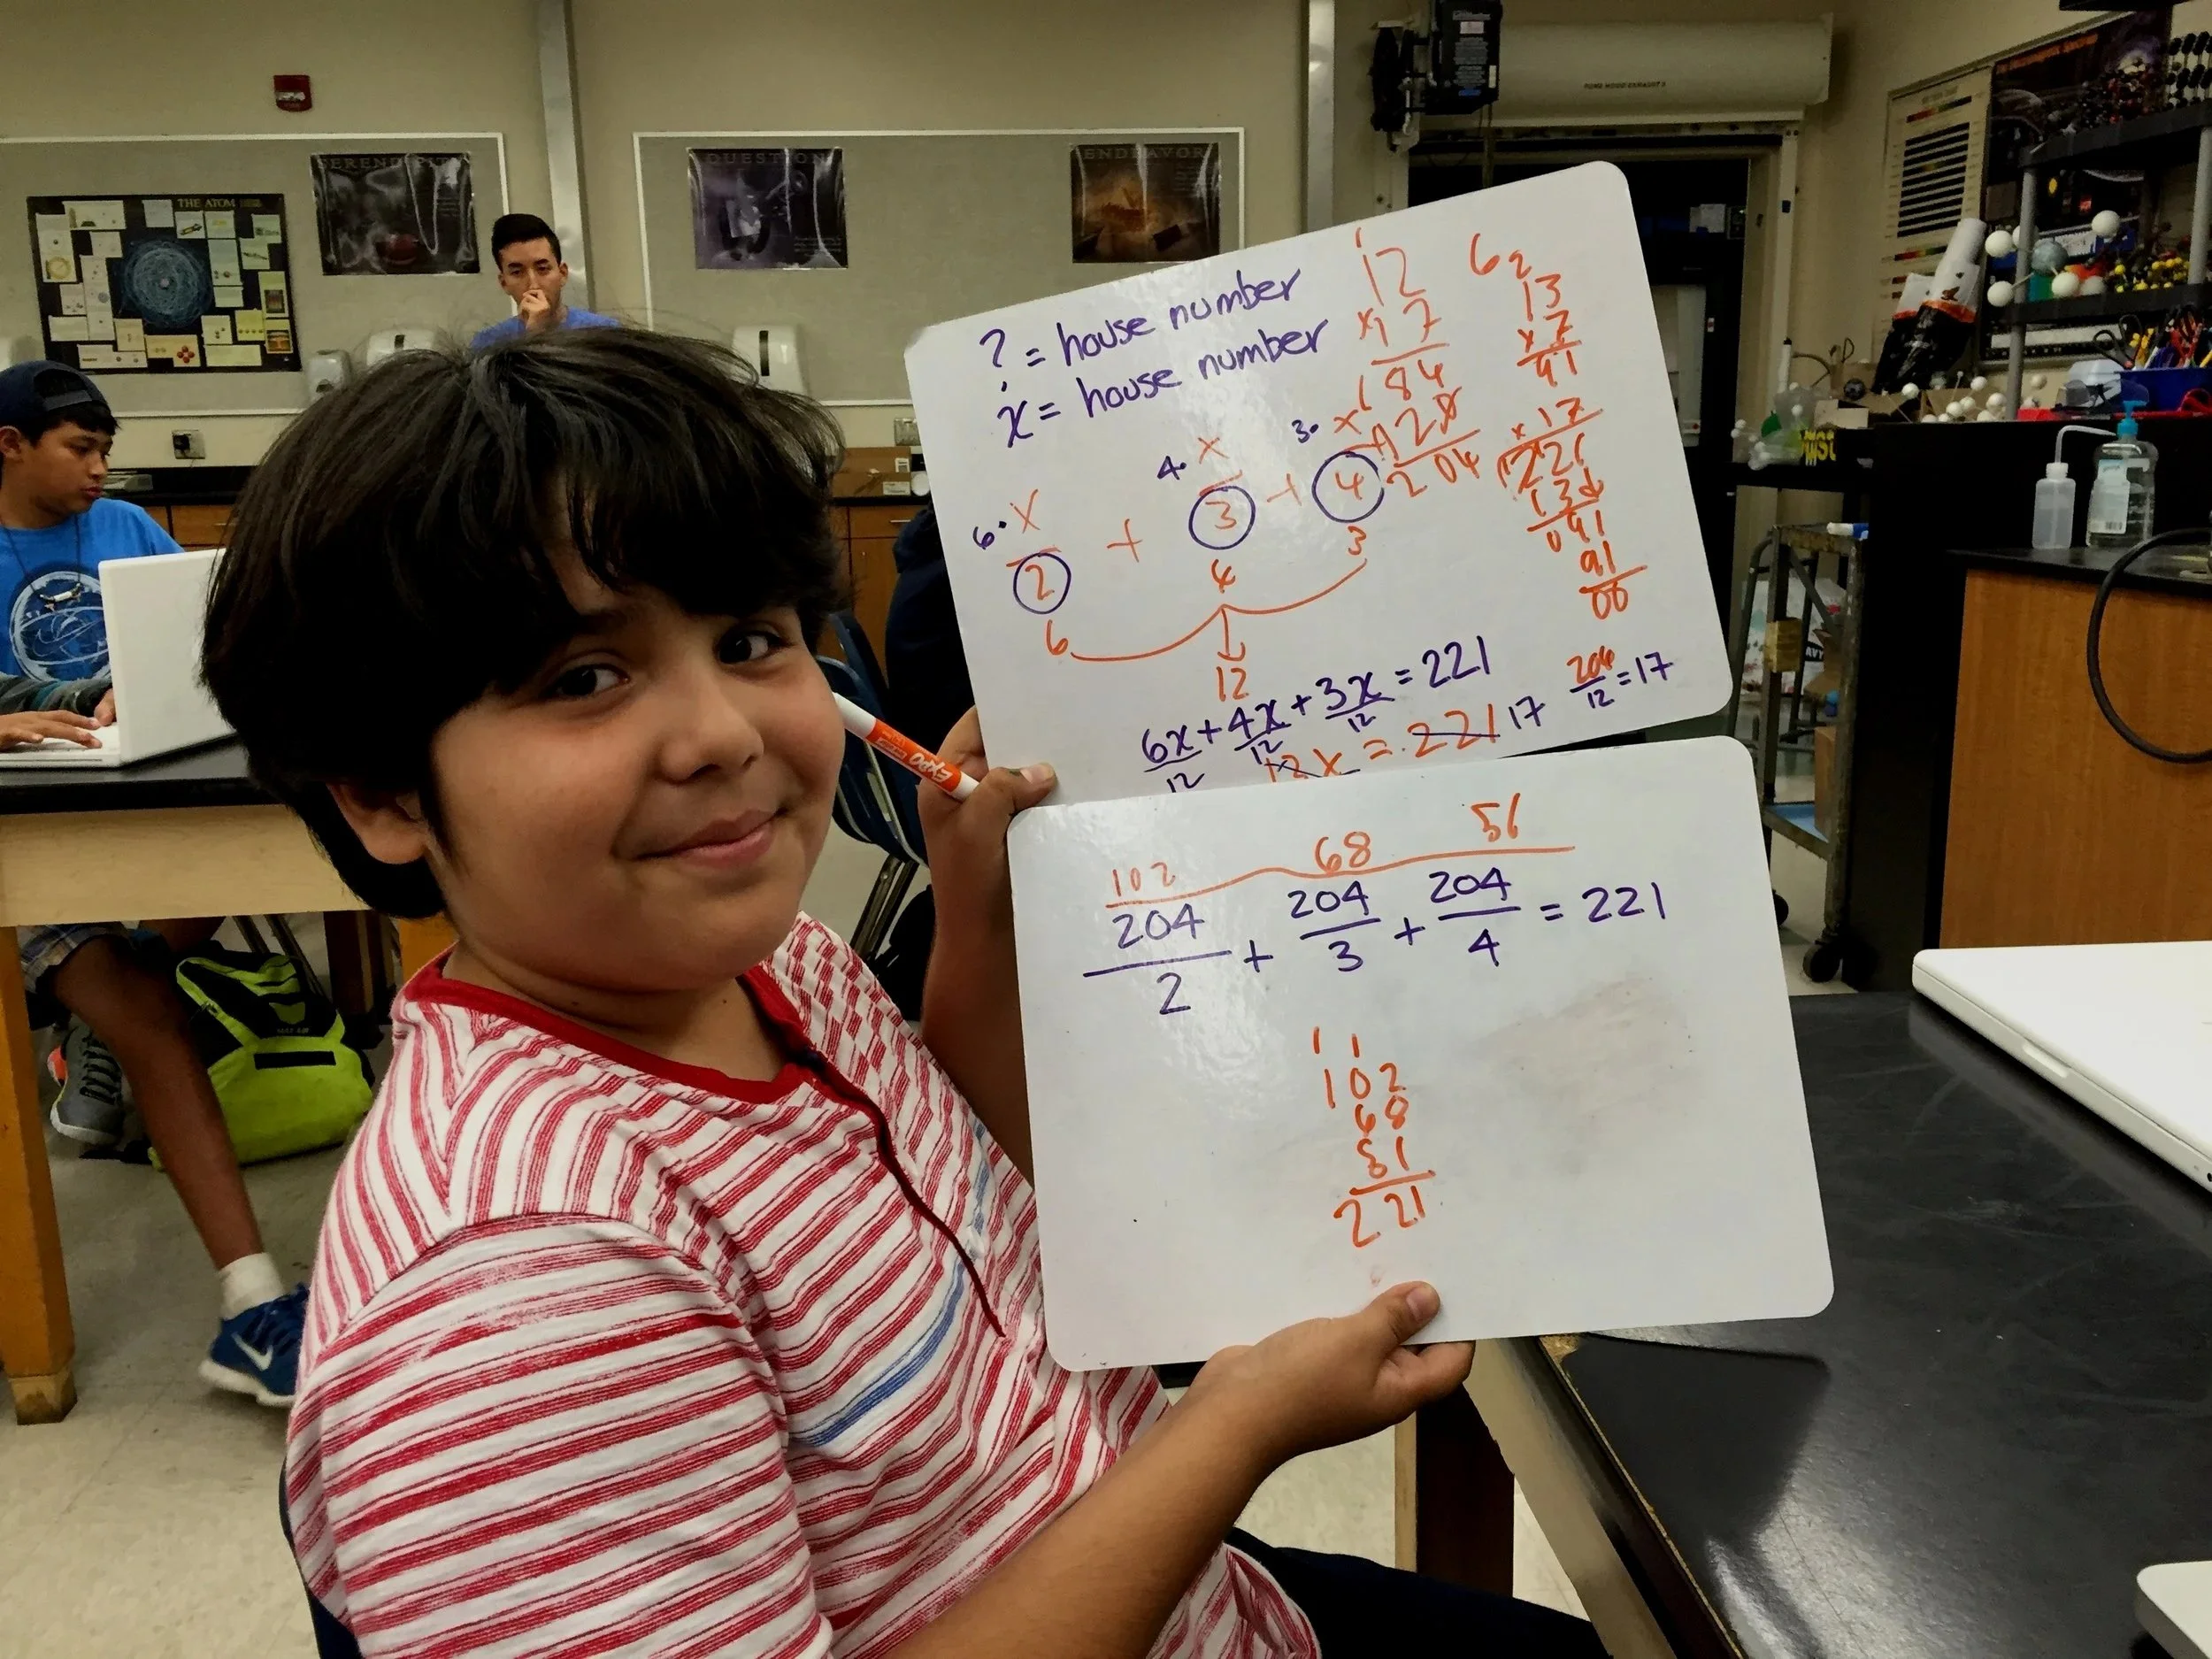 SERENDIPITY
QUESTION
ENDEAVOR
THE ATOM
FUME HOOD EXHAUST 2
? = house number
x = house number
1
12
x17
184
+120
204
6 2
13
x 7
91
x 17
1221
13↓
091
91
00
6· x/2 + 4· x/3 + 3· x/4
6 4 3
12
6x/12 + 4x/12 + 3x/12 = 221
204/12 = 17
12x = 221 17
EXPO
102 68 51
204/2 + 204/3 + 204/4 = 221
1 1
102
68
51
221